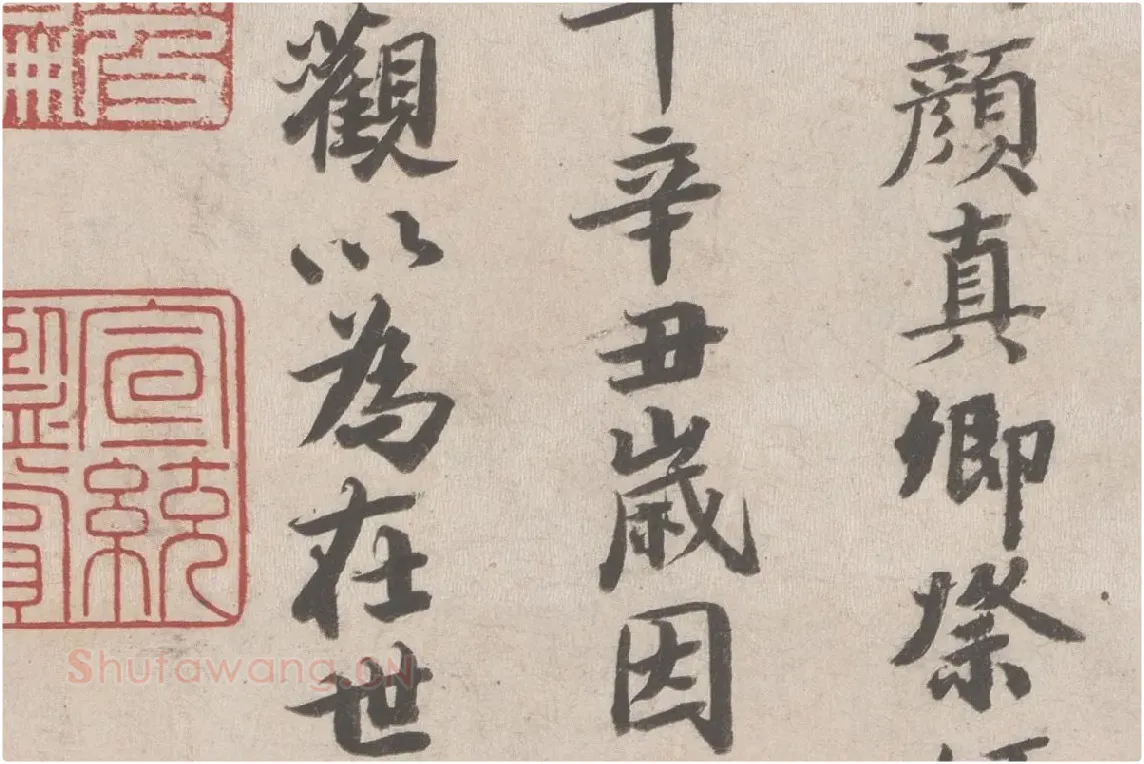 顔真卿祭
辛丑歲因
觀以為在世
宣統
Shufawang.CN